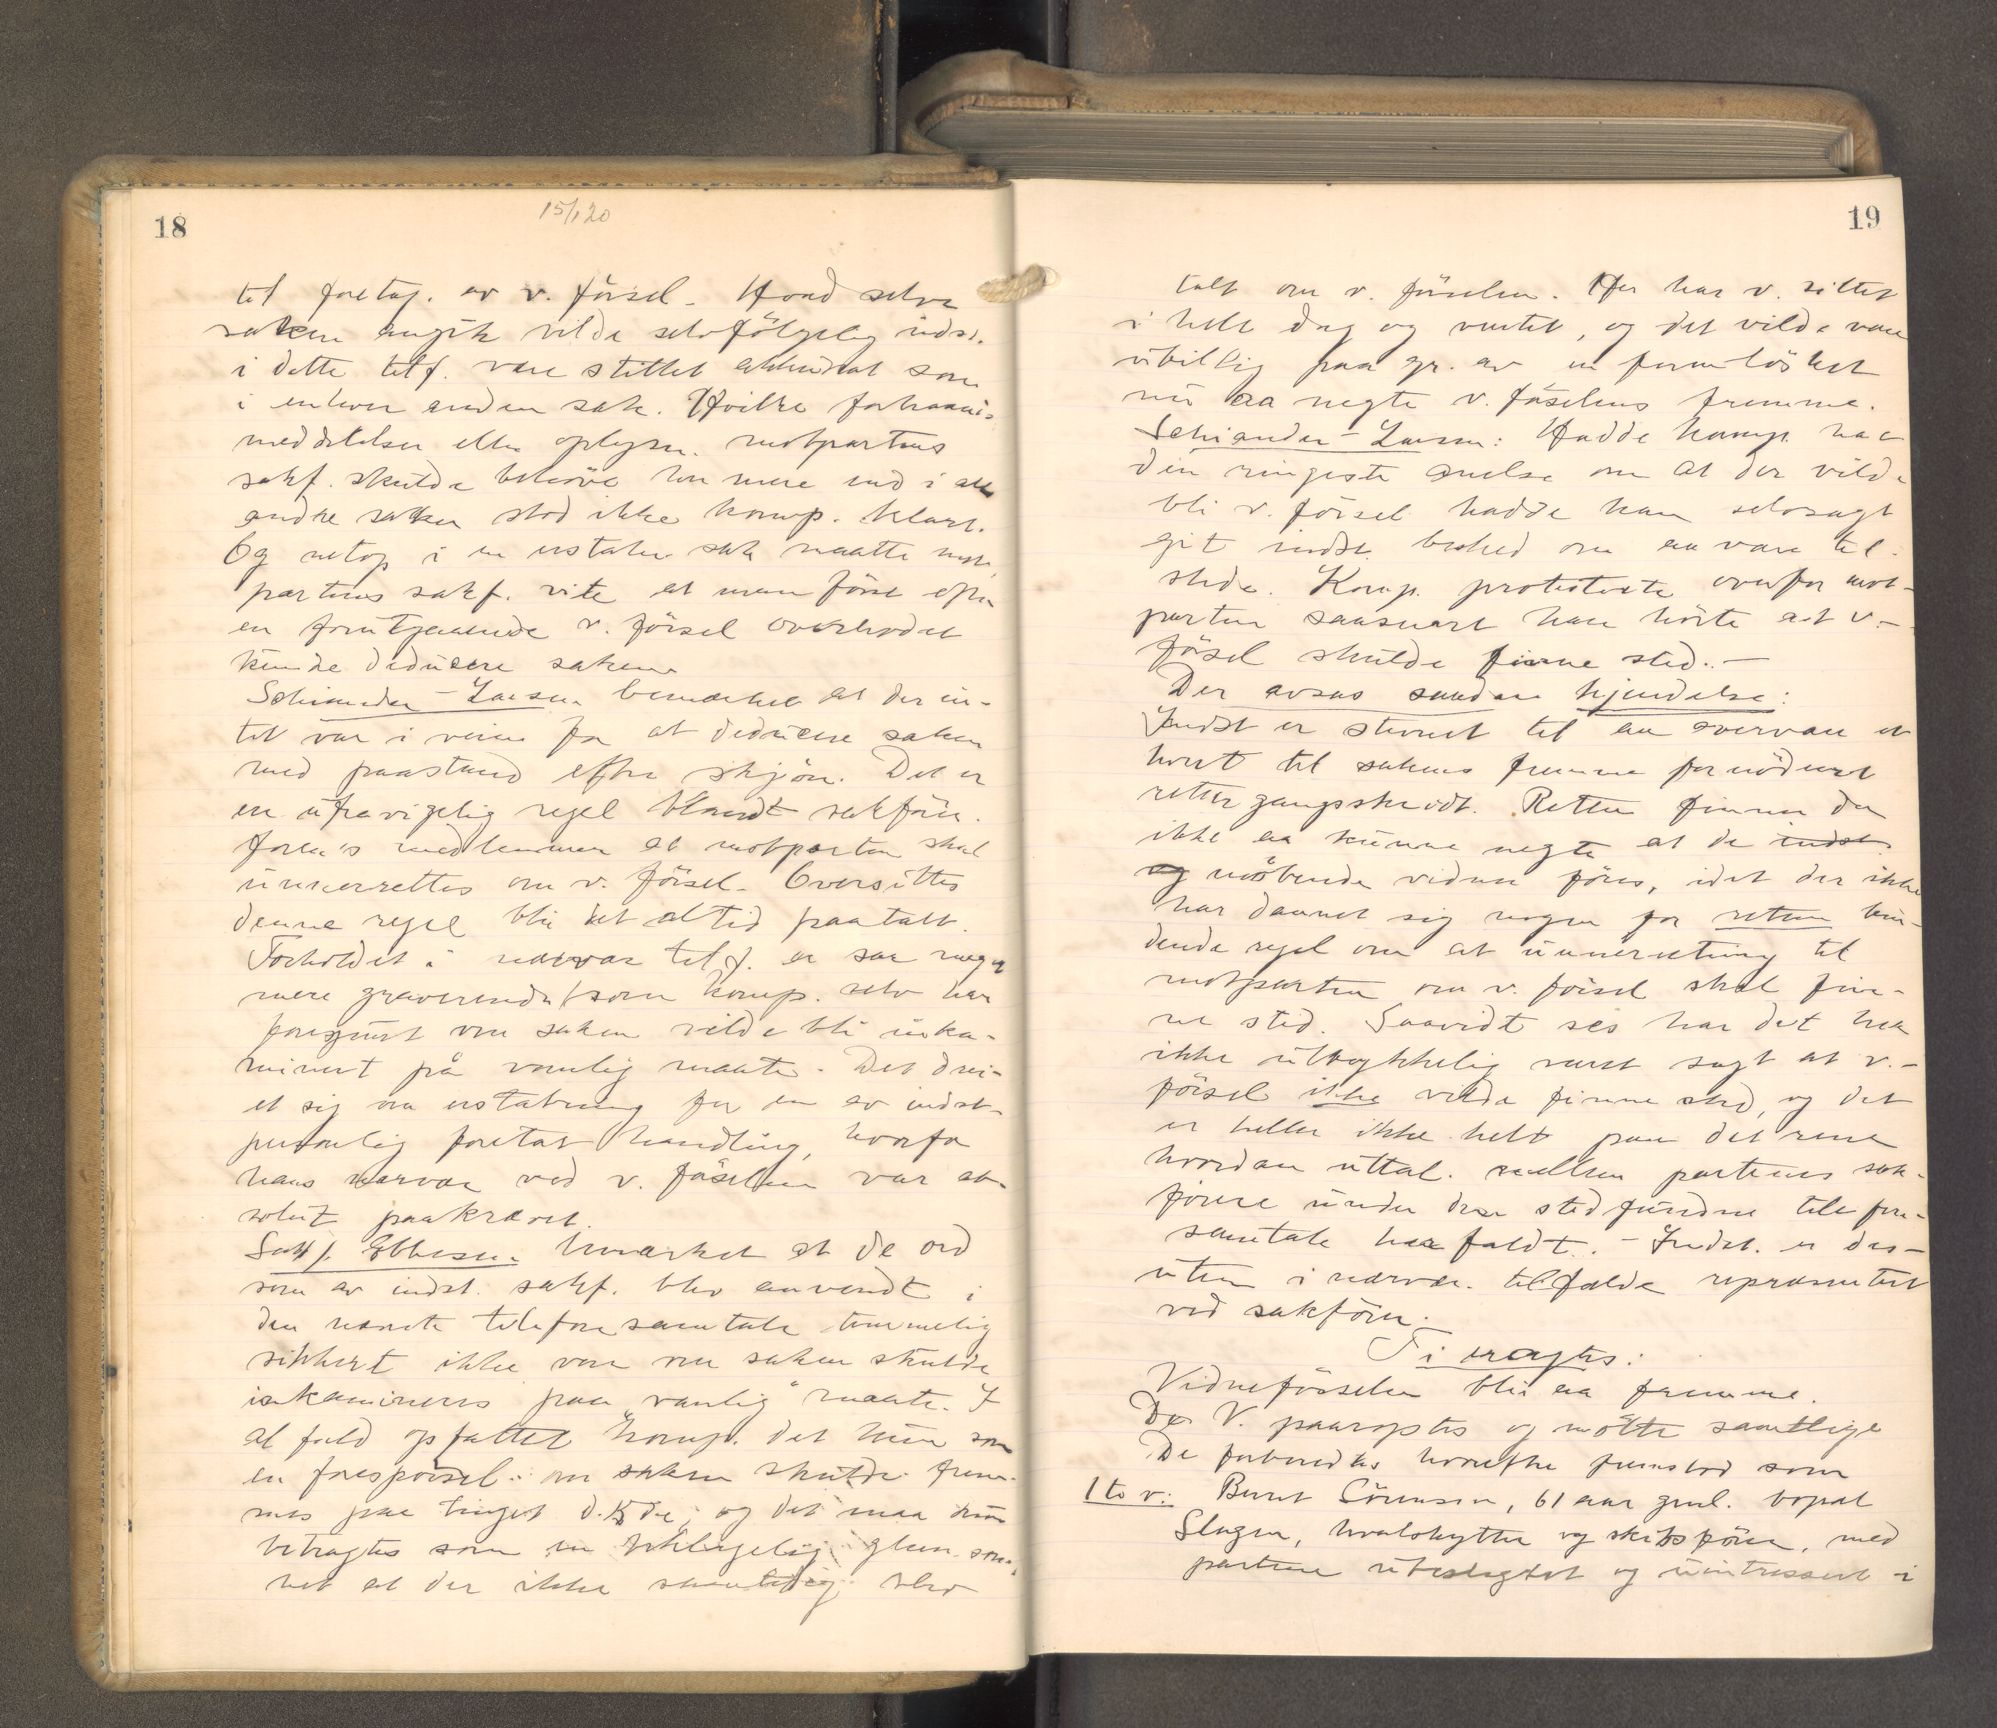 18
15/1 20
til foretag. av v. försel. Hvad selve
saken angik vilde selvfölgelig indst.
i dette tilf. være stillet akkurat som
i enhver anden sak. Hvilke forhaands
meddelelser eller oplysn. motpartens
sakf. skulde behöve her mere end i alle
andre saker stod ikke komp. klart.
Og netop i en injurie sak maatte mot-
partens sakf. vite at man först efter
en forutgaaende v. försel overhodet
kunde deducere saken.
Schiander-Larsen bemærket at der in-
tet var i veien for at deducere saken
med paastand efter skjön. Det er
en ufravigelig regel blandt sakförer
foren's medlemmer at motparten skal
underrettes om v. försel. Oversittes
denne regel blir det altid paatalt.
Forholdet i nærvær. tilf. er saa meget
mere graverende som komp. selv har
forespurt om saken vilde bli inka-
minert på vanlig maate. Det drei-
et sig om erstatning for en av indst.
personlig foretat handling, hvorfor
hans nærvær ved v. förselen var ab-
solut paakrævet.
Sakf. Ebbesen bemærket at de ord
som av indst. sakf. blev anvendt i
den nævnte telefonsamtale temmelig
sikkert ikke var om saken skulde
inkamineres paa "vanlig" maate. I
al fald opfattet komp. det kun som
en forespörsel om saken skulde frem-
mes paa tinget d. 15de, og det maa kun
betragtes som en beklagelig glem som-
het at der ikke samtidig blev
19
talt om v. förselen. Her har v. sittet
i hele dag og ventet, og det vilde være
ubillig paa gr. av en formlöshet
nu aa negte v. förselens fremme.
Schiander-Larsen: Hadde komp. hat
den ringeste anelse om at der vilde
bli v. försel hadde han selvsagt
git indst. besked om aa være til-
stede. Komp. protesterte overfor mot-
parten saasnart han hörte at v.-
försel skulde finne sted.-
Der avsas saadan kjendelse:
Indst. er stevnet til aa overvære et
hvert til sakens fremme fornödent
rettergangsskridt. Retten finner da
ikke aa kunne negte at de indst.
og mötende vidner föres, idet der ikke
har dannet sig nogen for retten bin-
dende regel om at underretning til
motparten om v. försel skal fin-
ne sted. Saavidt ses har det her
ikke uttrykkelig været sagt at v.-
försel ikke vilde finne sted, og det
er heller ikke helt paa det rene
hvordan uttal. mellem partenes sak-
förere under den stedfundne telefon-
samtale har faldt. - Indst. er des-
uten i nærvær. tilfælde repræsentert
ved sakförer.
Ti eragtes:
Vidneförselen blir aa fremme.
De V. paaroptes og mötte samtlige
De forberedtes hvorefter fremstod som
1te v: Bernt Sörensen, 61 aar gml. bopæl
Slagen, hvalskytter og skibsförer, med
partene ubeslegtet og uinteressert i